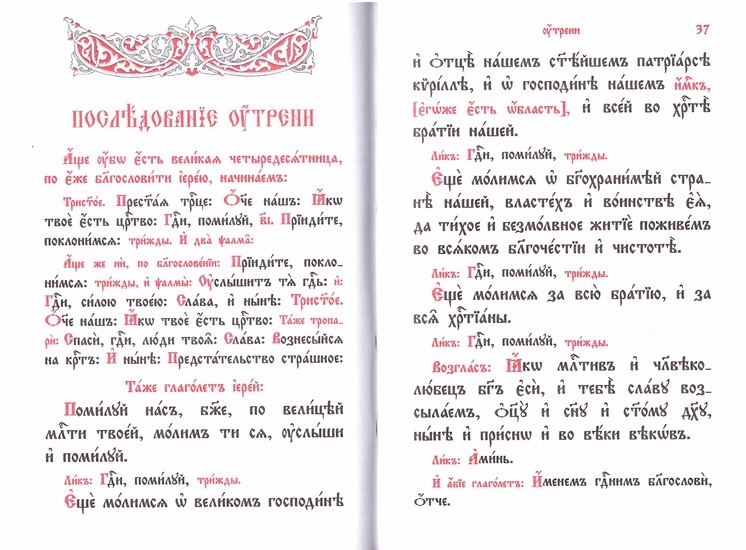 ПОСЛѢ́ДОВАНІЕ ОУ҆́ТРЕНИ
А҆́ще оу҆́бѡ є҆́сть вели́каѧ четыредесѧ́тница,
по є҆́же благослови́ти і҆ере́ю, начина́емъ:
Трист҃о́е. Прест҃а́ѧ трⷪ҇це: Ѻ҆́ч҃е на́шъ: Ꙗ҆́кѡ
твоѐ є҆́сть црⷭ҇тво: Гдⷭ҇и, поми́лꙋй, в҃і. Прїиди́те,
поклони́мсѧ: три́жды. И҆ два̀ ѱалма̑:
А҆́ще же нѝ, по благослове́нїи: Прїиди́те, покло-
ни́мсѧ: три́жды, и҆ ѱалмы̀: Оу҆слы́шитъ тѧ̀ гдⷭ҇ь: и҆:
Гдⷭ҇и, си́лою твоє́ю: Сла́ва, и҆ ны́нѣ: Трист҃о́е.
Ѻ҆́ч҃е на́шъ: Ꙗ҆́кѡ твоѐ є҆́сть црⷭ҇тво: Та́же тропа-
рѝ: Спасѝ, гдⷭ҇и, лю́ди твоѧ̑: Сла́ва: Вознесы́йсѧ
на крⷭ҇тъ: И҆ ны́нѣ: Предста́тельство стра́шное:
Та́же глаго́летъ і҆ере́й:
Поми́лꙋй на́съ, бж҃е, по вели́цѣй
млⷭ҇ти твое́й, мо́лимъ ти сѧ, оу҆слы́ши
и҆ поми́лꙋй.
Ли́къ: Гдⷭ҇и, поми́лꙋй, три́жды.
Є҆щѐ мо́лимсѧ ѡ҆ вели́комъ господи́нѣ
оу҆́трени
37
и҆ ѻ҆тцѣ̀ на́шемъ ст҃ѣ́йшемъ патрїа́рсѣ
кѷрі́ллѣ, и҆ ѡ҆ господи́нѣ на́шемъ и҆́мⷬ҇къ,
[є҆гѡ́же є҆́сть ѡ҆́бласть], и҆ все́й во хрⷭ҇тѣ̀
бра́тїи на́шей.
Ли́къ: Гдⷭ҇и, поми́лꙋй, три́жды.
Є҆щѐ мо́лимсѧ ѡ҆ бг҃охрани́мѣй стра-
нѣ̀ на́шей, власте́хъ и҆ во́инствѣ є҆ѧ̀,
да ти́хое и҆ безмо́лвное житїѐ поживе́мъ
во всѧ́комъ благоче́стїи и҆ чистотѣ̀.
Ли́къ: Гдⷭ҇и, поми́лꙋй, три́жды.
Є҆щѐ мо́лимсѧ за всю̀ бра́тїю, и҆ за
всѧ̑ хрⷭ҇тїа́ны.
Ли́къ: Гдⷭ҇и, поми́лꙋй, три́жды.
Возгла́съ: Ꙗ҆́кѡ млⷭ҇тивъ и҆ чл҃вѣко-
лю́бецъ бг҃ъ є҆сѝ, и҆ тебѣ̀ сла́вꙋ воз-
сыла́емъ, ѻ҆ц҃ꙋ̀ и҆ сн҃ꙋ и҆ ст҃о́мꙋ дх҃ꙋ,
ны́нѣ и҆ при́снѡ и҆ во вѣ́ки вѣкѡ́въ.
Ли́къ: А҆ми́нь.
И҆ а҆́бїе глаго́летъ: И҆́менемъ гдⷭ҇нимъ благословѝ,
ѻ҆́тче.